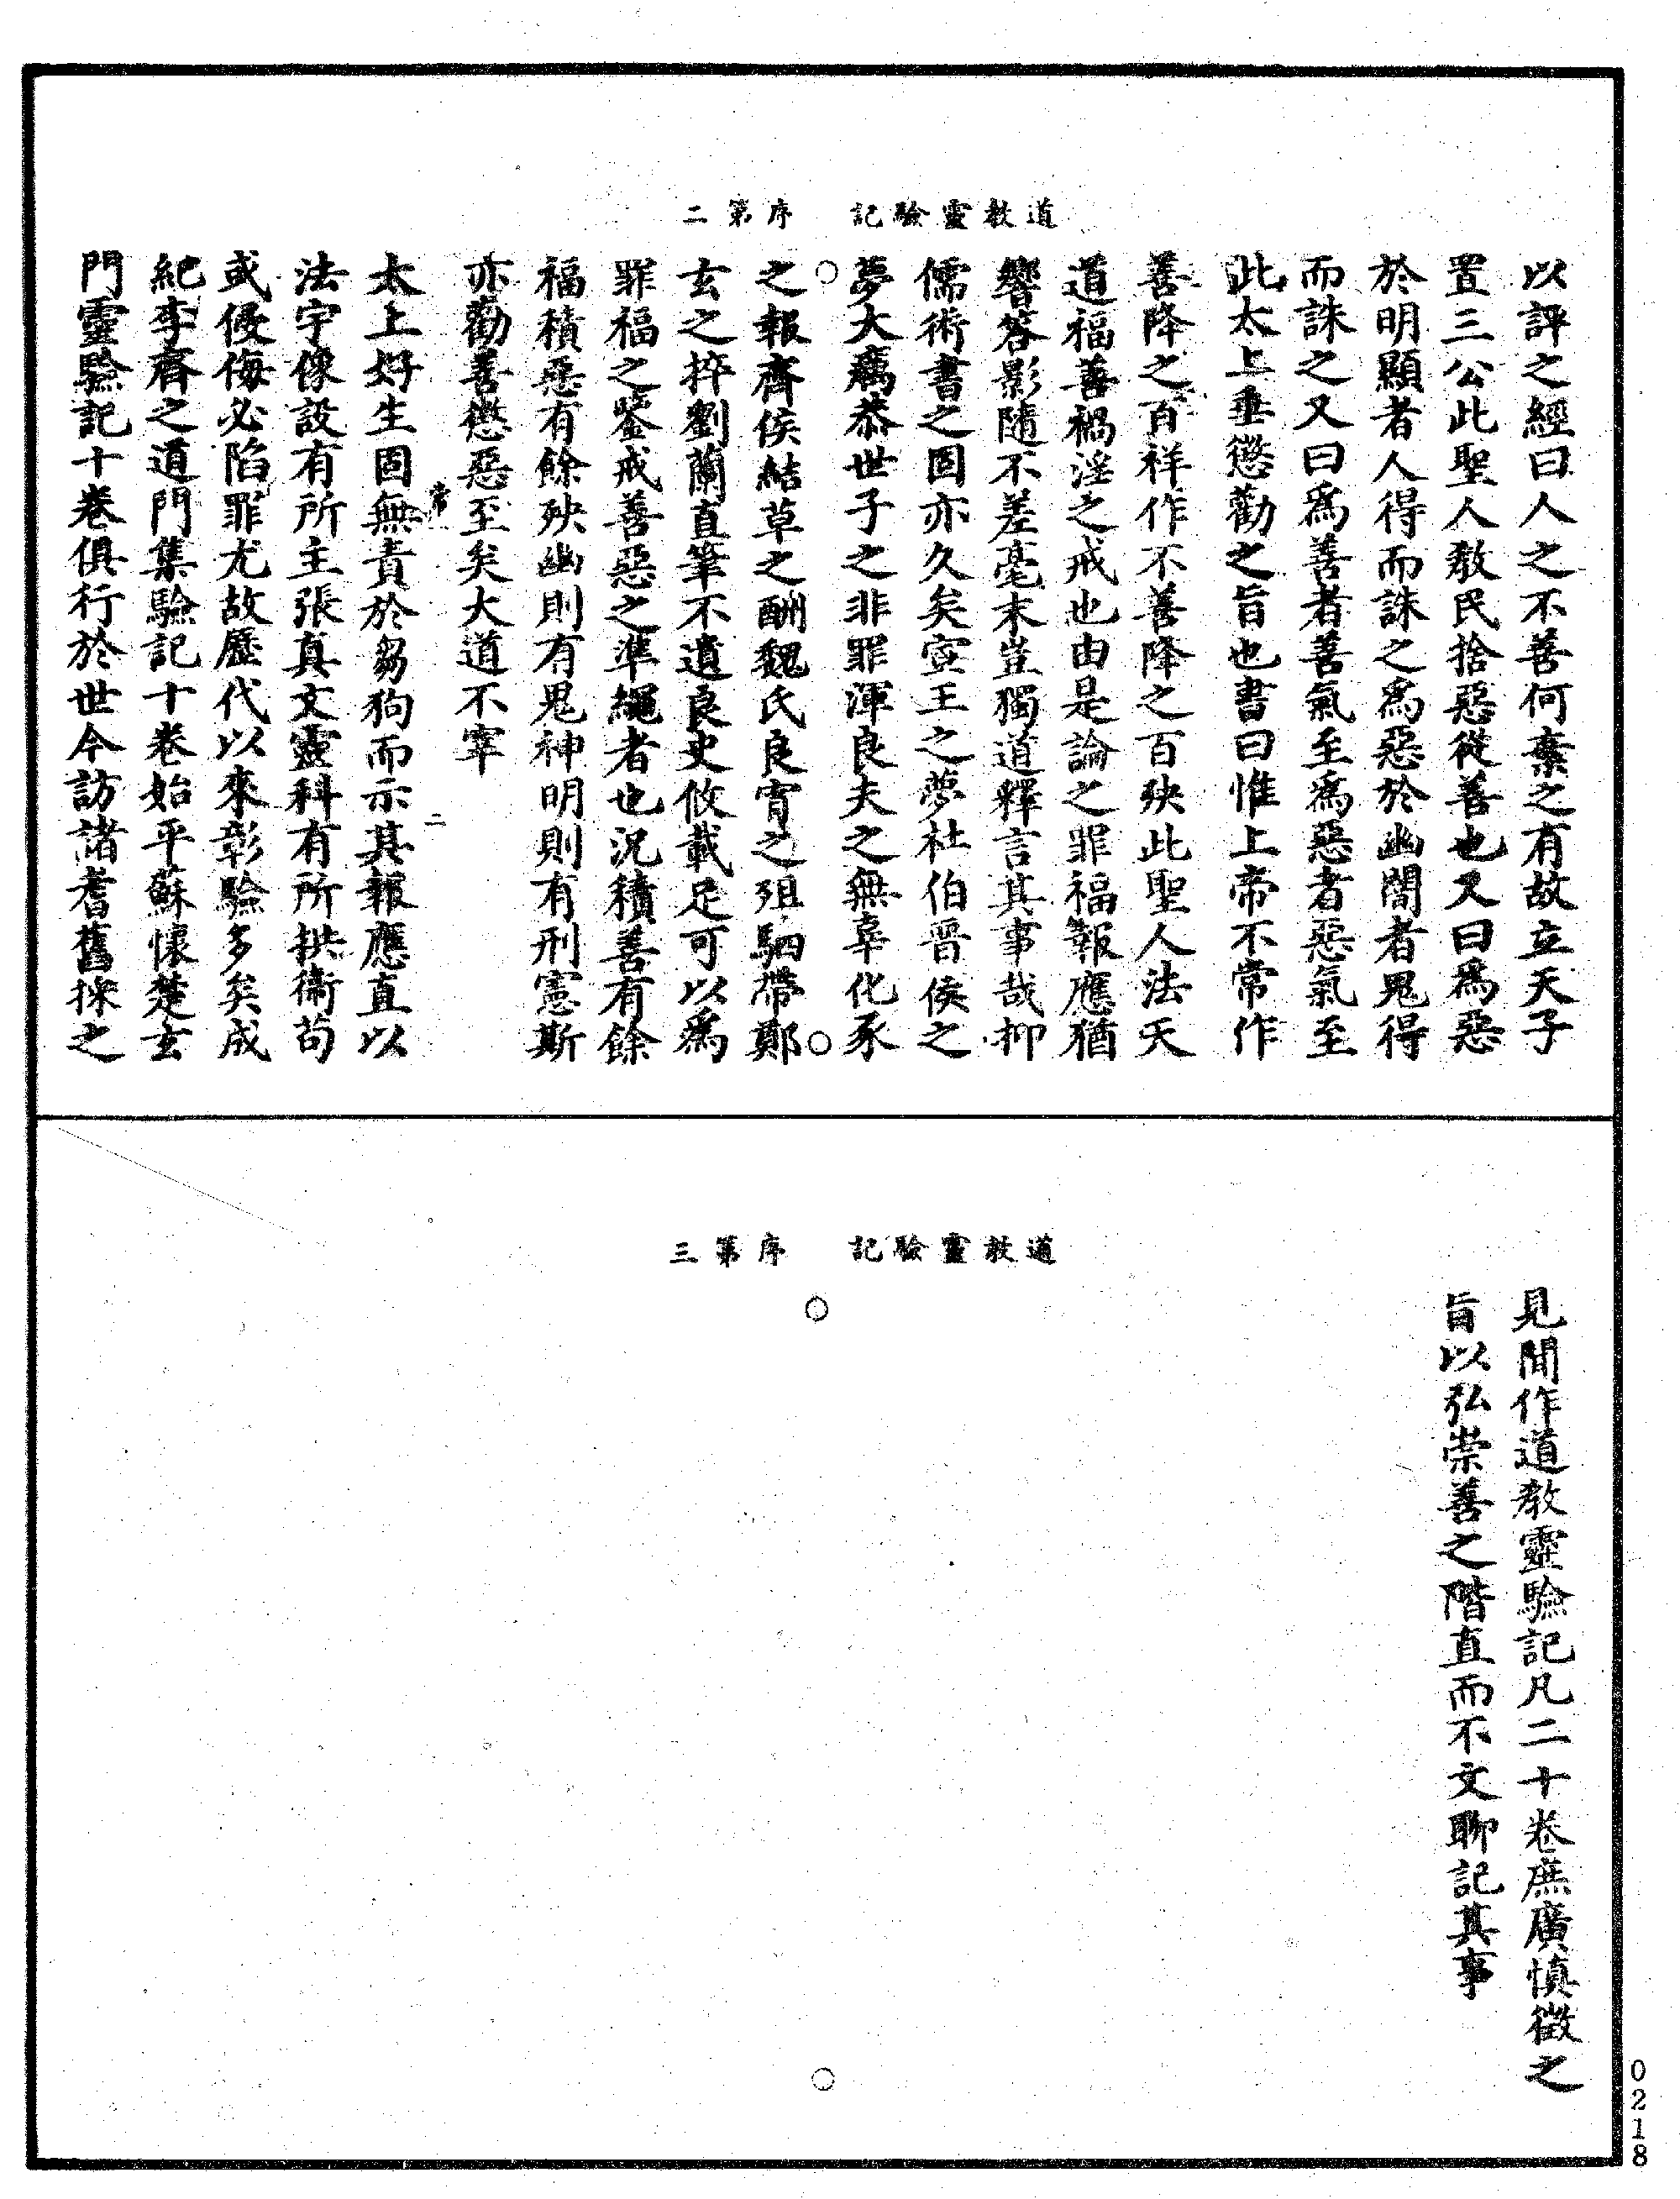 道教靈驗記　序第二
以評之經曰人之不善何棄之有故立天子
置三公此聖人教民捨惡從善也又曰爲惡
於明顯者人得而誅之爲惡於幽闇者鬼得
而誅之又曰爲善者善氣至爲惡者惡氣至
此太上垂懲勸之旨也書曰惟上帝不常作
善降之百祥作不善降之百殃此聖人法天
道福善禍淫之戒也由是論之罪福報應猶
響答影隨不差毫末豈獨道釋言其事哉抑
儒術書之固亦久矣宣王之夢杜伯晉侯之
夢大厲恭世子之非罪渾良夫之無辜化豕
之報齊侯結草之酬魏氏良霄之殂駟帶鄭
玄之捽劉蘭直筆不遺良史攸載足可以爲
罪福之鑒戒善惡之準繩者也況積善有餘
福積惡有餘殃幽則有鬼神明則有刑憲斯
亦勸善懲惡至矣大道不宰
常一　二
太上好生固無責於芻狗而示其報應直以
法宇像設有所主張真文靈科有所拱衞苟
或侵侮必陷罪尤故歷代以來彰驗多矣成
紀李齊之道門集驗記十卷始平蘇懷楚玄
門靈驗記十卷俱行於世今訪諸耆舊採之
道教靈驗記　序第三
見聞作道教靈驗記凡二十卷庶廣慎徵之
旨以弘崇善之階直而不文聊記其事
0218